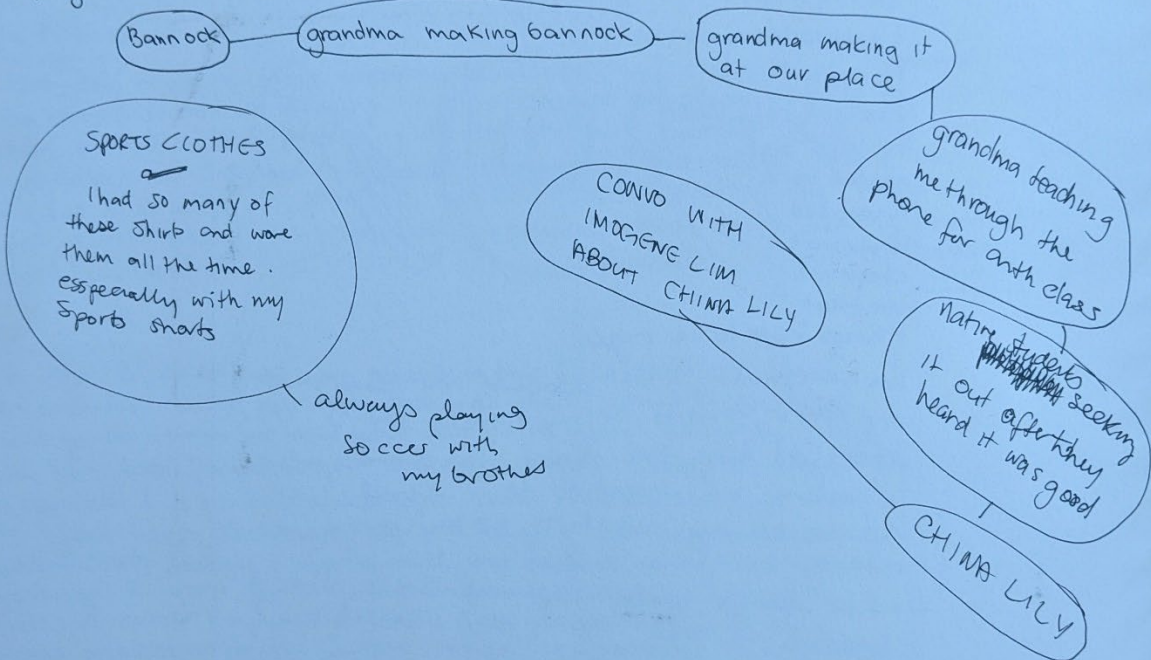 Bannock
grandma making bannock
grandma making it
at our place
grandma teaching
me through the
phone for anth class
native students
seeking
it out after they
heard it was good
CHINA LILY
CONVO WITH
IMOGENE LIM
ABOUT CHINA LILY
SPORTS CLOTHES
I had so many of
these shirts and wore
them all the time.
esspecially with my
Sports shorts
always playing
soccer with
my brothes